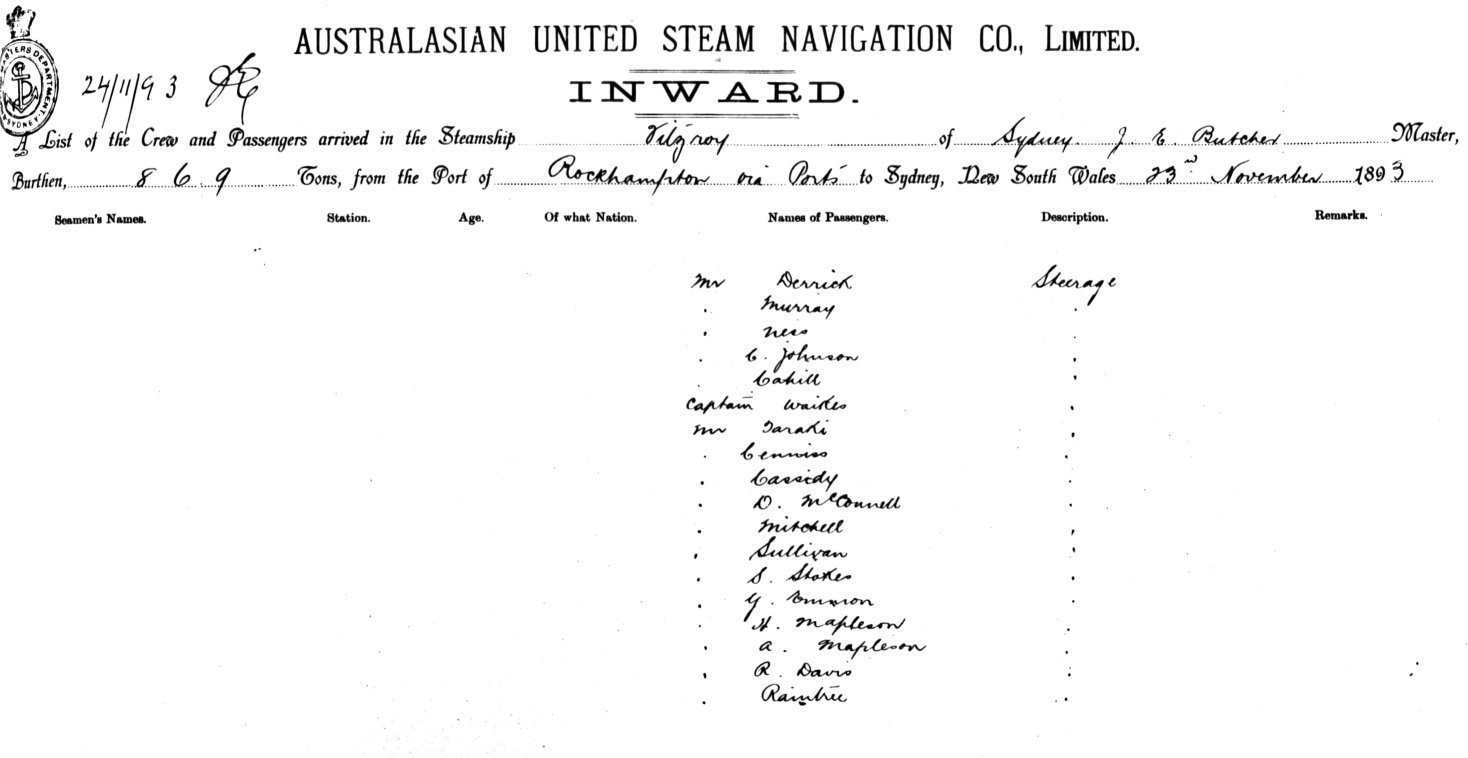 AUSTRALASIAN UNITED STEAM NAVIGATION CO., LIMITED.
24/11/93
INWARD.
A List of the Crew and Passengers arrived in the Steamship Fitzroy of Sydney. J. E. Butcher Master,
Burthen, 869 Tons, from the Port of Rockhampton via Ports to Sydney, New South Wales 23rd November 1893
Seamen's Names. Station. Age. Of what Nation. Names of Passengers. Description. Remarks.
Mr Derrick Steerage
. Murray .
. Ness .
. C. Johnson .
. Cahill .
Captain Waikes .
Mr Taraki .
. .
. Cassidy .
. D. McConnell .
. Mitchell .
. Sullivan .
. S. Stokes .
. G. Emmson .
. H. Mapleson .
. A. Mapleson .
. R. Davis .
. Raintree .